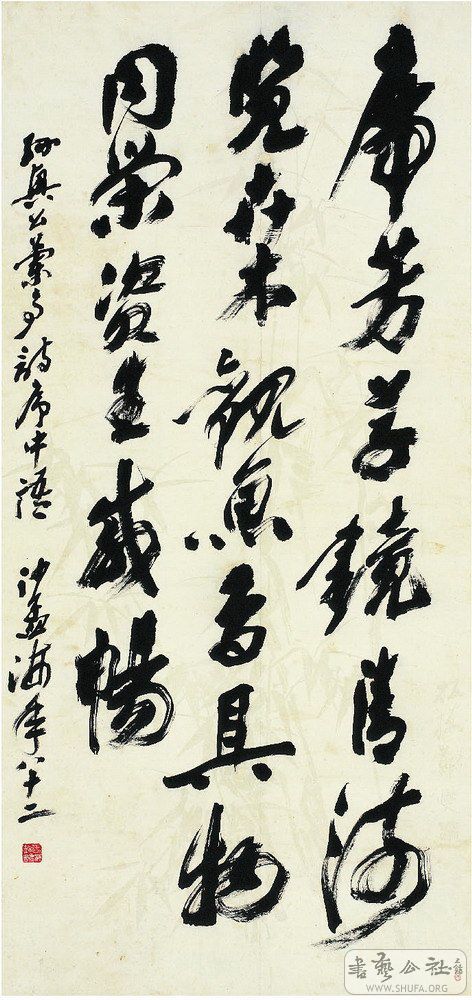 席芳草鏡清流
覽卉木觀魚鳥具物
同榮資生咸暢
孫興公蘭亭詩序中語 沙孟海年八十二
書藝公社
WWW.SHUFA.ORG